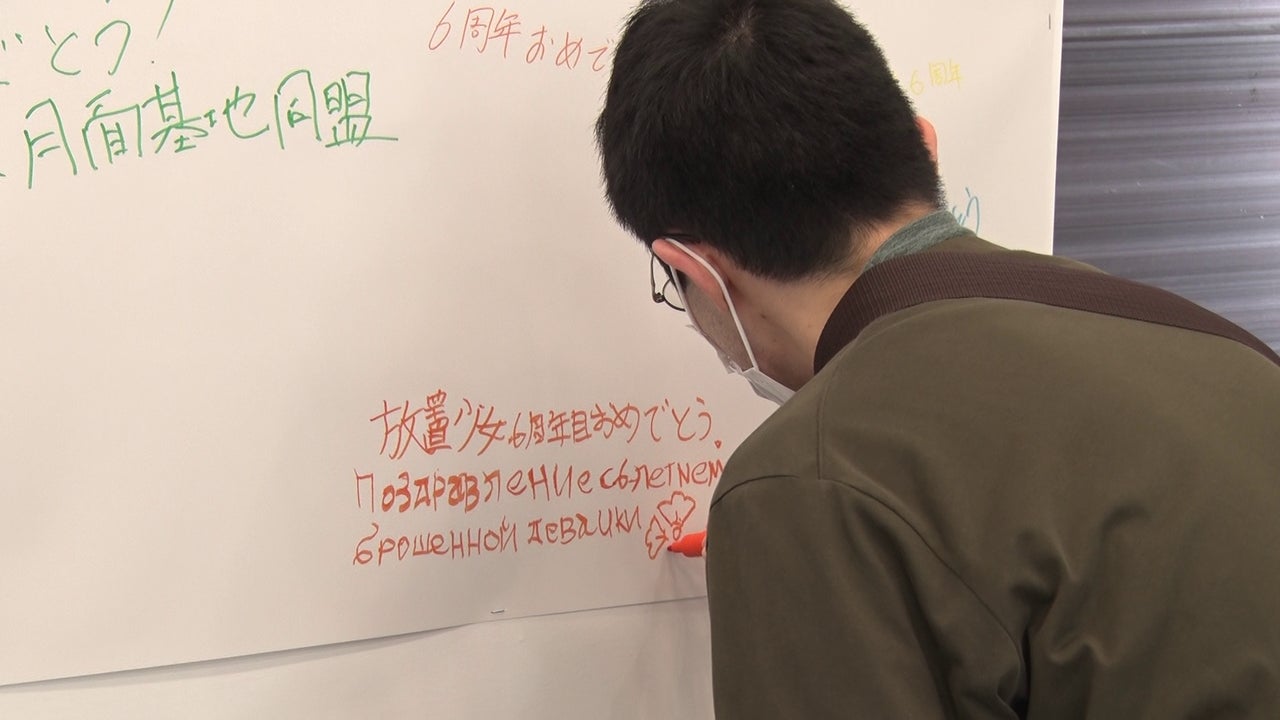 どとう!
月面基地同盟
6周年おめで
6周年
放置少女6周年目おめでとう。
поздравление с 6-летием
брошенной девашки